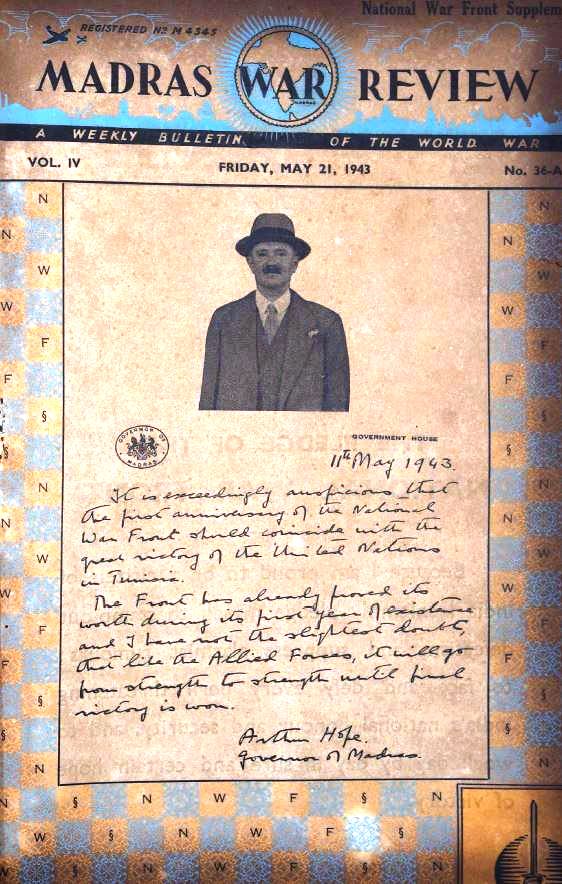 National War Front Supplem
REGISTERED No M 4345
MADRAS WAR REVIEW
MADRAS
A WEEKLY BULLETIN OF THE WORLD WAR
VOL. IV
FRIDAY, MAY 21, 1943
No. 36-A
GOVERNOR OF MADRAS
GOVERNMENT HOUSE
11th May 1943.
It is exceedingly auspicious that
the first anniversary of the National
War Front should coincide with the
great victory of the United Nations
in Tunisia.
The Front has already proved its
worth during its first year of existence
and I have not the slightest doubt,
that like the Allied Forces, it will go
from strength to strength until final
victory is won.
Arthur Hope.
Governor of Madras.
N
N
W
W
F
F
§
§
N
N
W
W
F
F
§
§
N
N
W
F
§
N
W
F
§
N
W
F
§
N
§ N W F § N W F § N
N W § N W F § N W